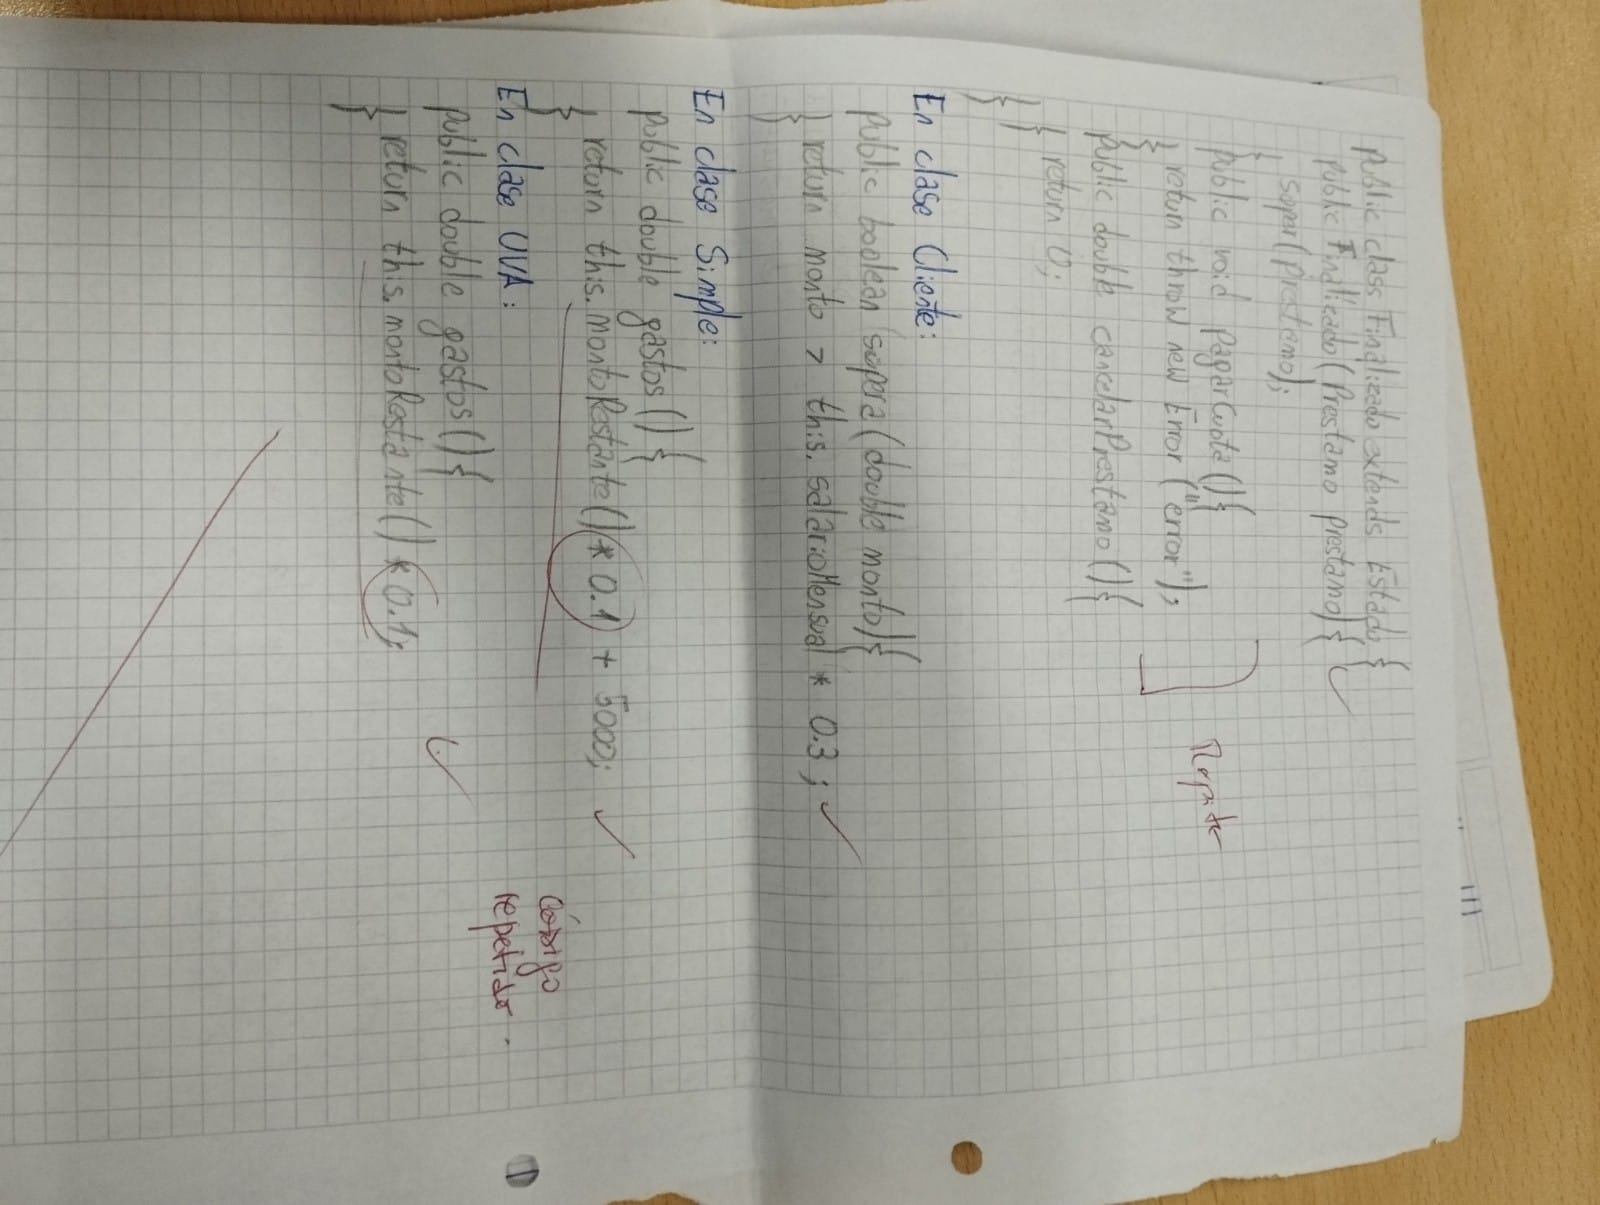 public class Finalizado extends Estado {
public Finalizado (Prestamo prestamo) {
super(prestamo);
}
public void pagarCuota () {
Repite
return throw new Error ("error");
}
public double cancelarPrestamo () {
return 0;
}
}
En clase Cliente:
public boolean supera (double monto) {
return monto > this.salarioMensual * 0.3;
}
En clase Simple:
public double gastos () {
return this.montoRestante() * 0.1 + 5000;
}
código
repetido.
En clase UVA:
public double gastos () {
return this.montoRestante() * 0.1;
}